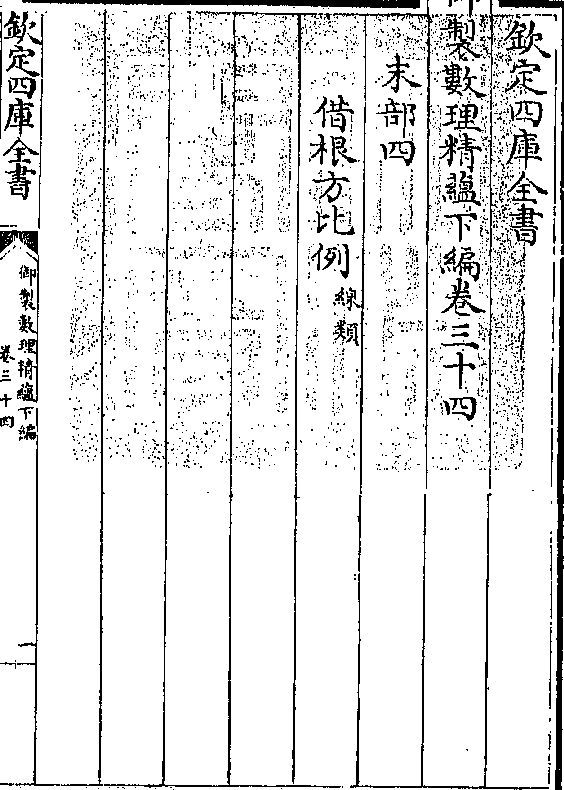 欽定四庫全書
御製數理精蘊下編卷三十四
末部四
借根方比例線類
欽定四庫全書
御製數理精蘊下編
卷三十四
一